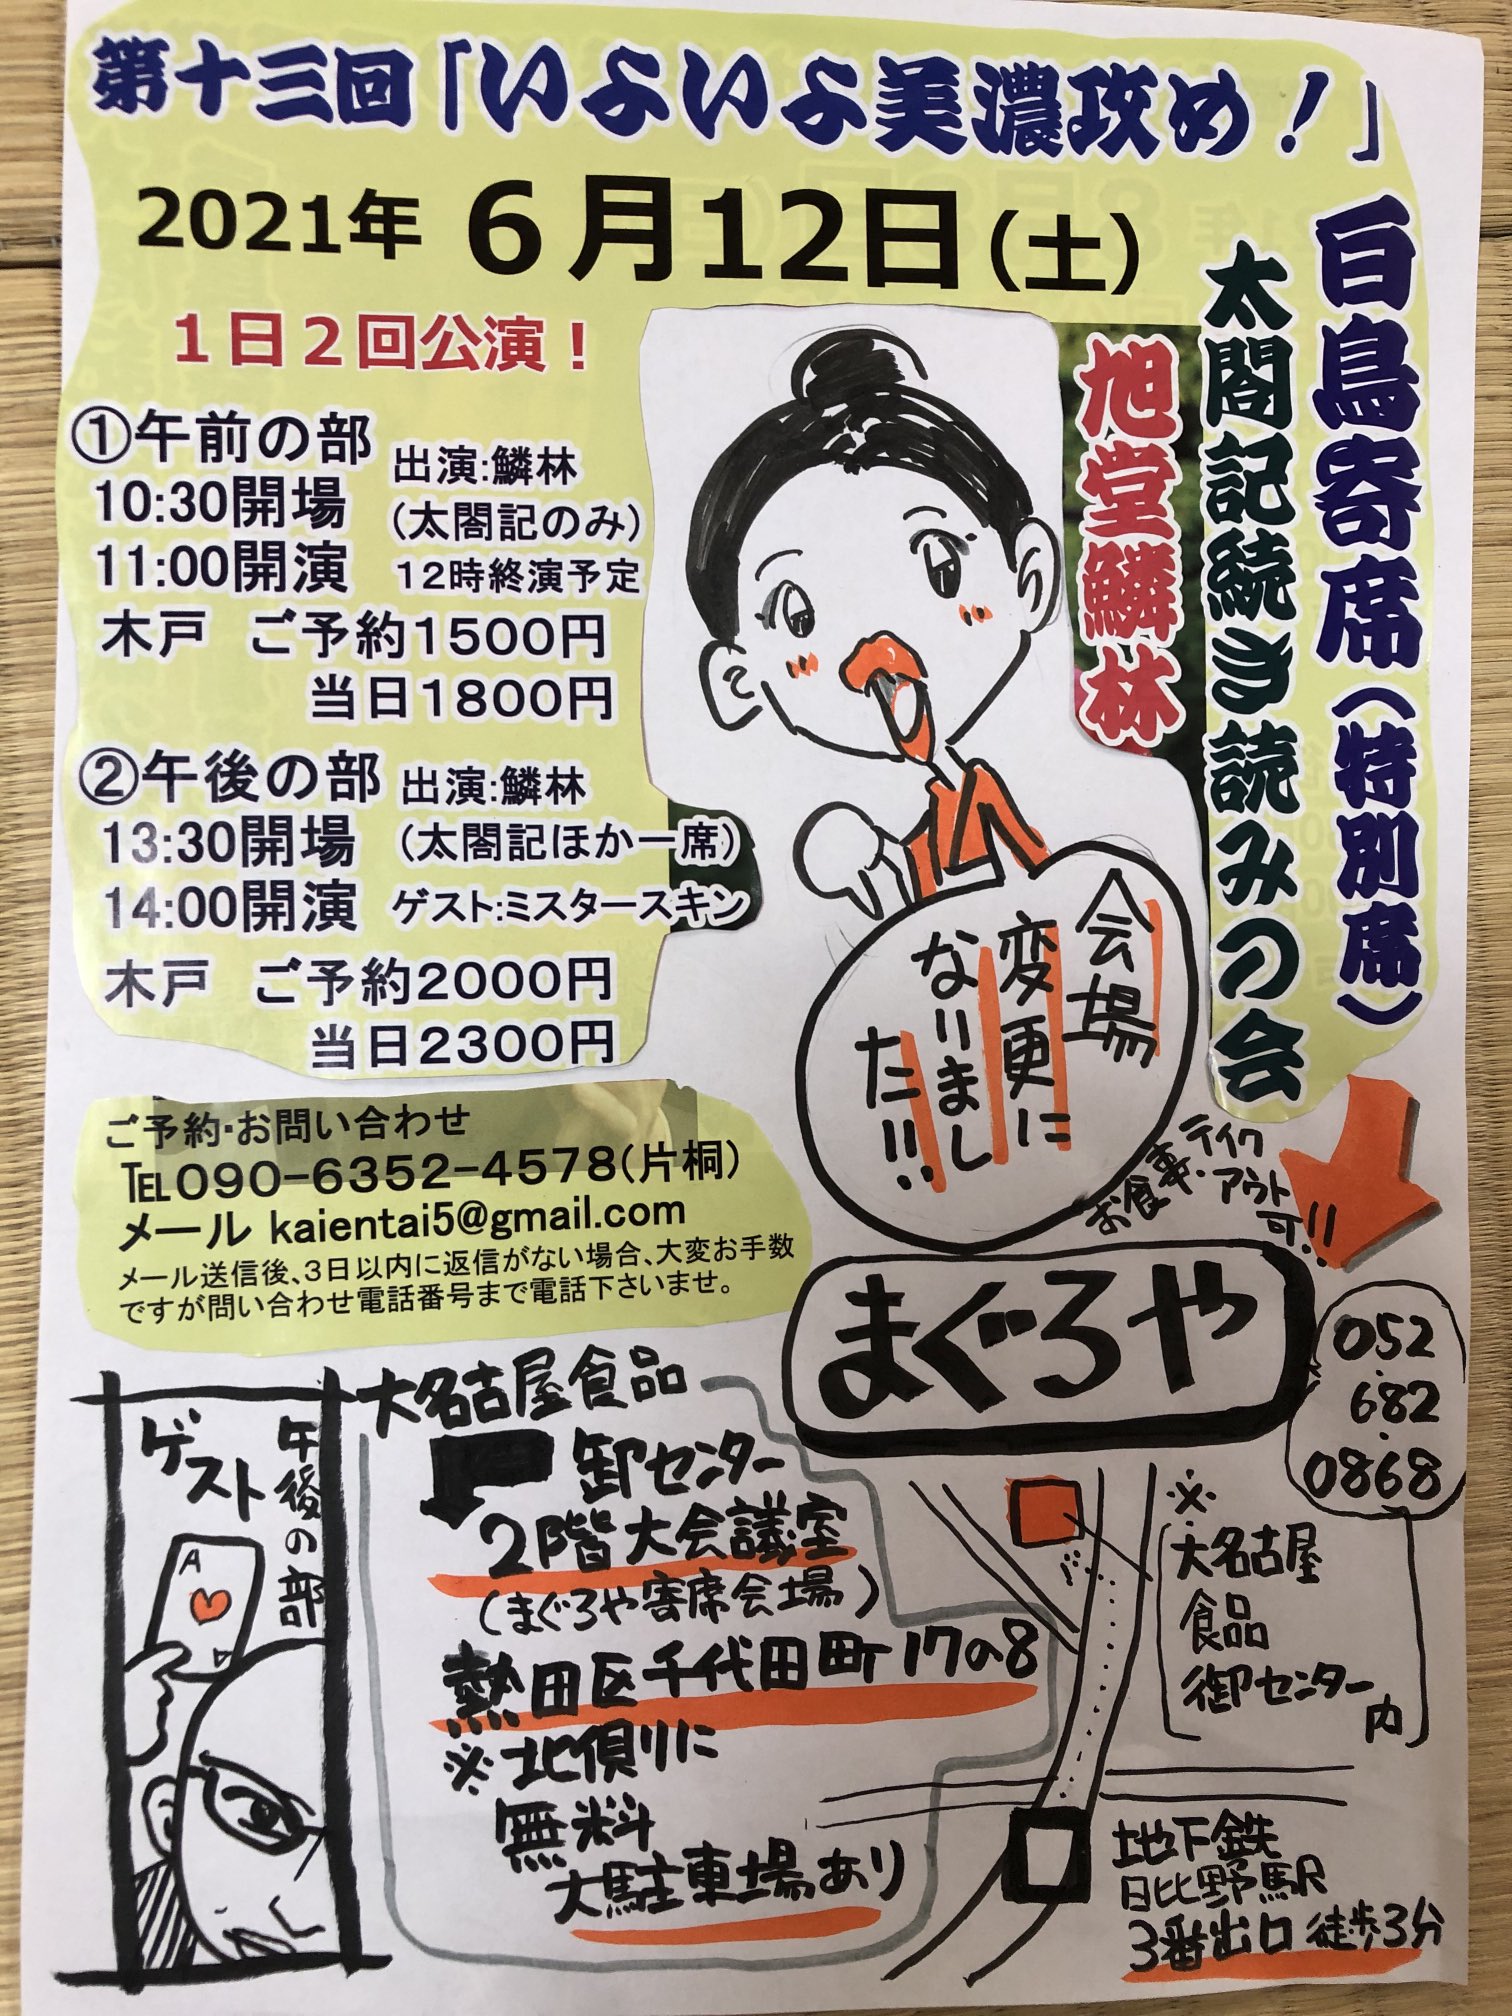 第十三回「いよいよ美濃攻め！」
2021年 6月12日(土)
白鳥寄席(特別席)
太閤記続き読みつ会
旭堂鱗林
1日2回公演！
①午前の部
出演:鱗林
10:30開場
(太閤記のみ)
11:00開演
12時終演予定
木戸 ご予約1500円
当日1800円
②午後の部
出演:鱗林
13:30開場
(太閤記ほか一席)
14:00開演
ゲスト:ミスタースキン
木戸 ご予約2000円
当日2300円
会場
変更に
なりまし
た!!
ご予約･お問い合わせ
TEL090-6352-4578(片桐)
メール kaientai5@gmail.com
メール送信後､3日以内に返信がない場合､大変お手数
ですが問い合わせ電話番号まで電話下さいませ。
お食事・テイク
アウト
可!!
まぐろや
052
682
0868
午後の部
ゲスト
A
大名古屋食品
卸センター
2階大会議室
(まぐろや寄席会場)
熱田区千代田町17の8
※北側に
無料
大駐車場あり
※
大名古屋
食品
卸センター内
地下鉄
日比野駅
3番出口 徒歩3分